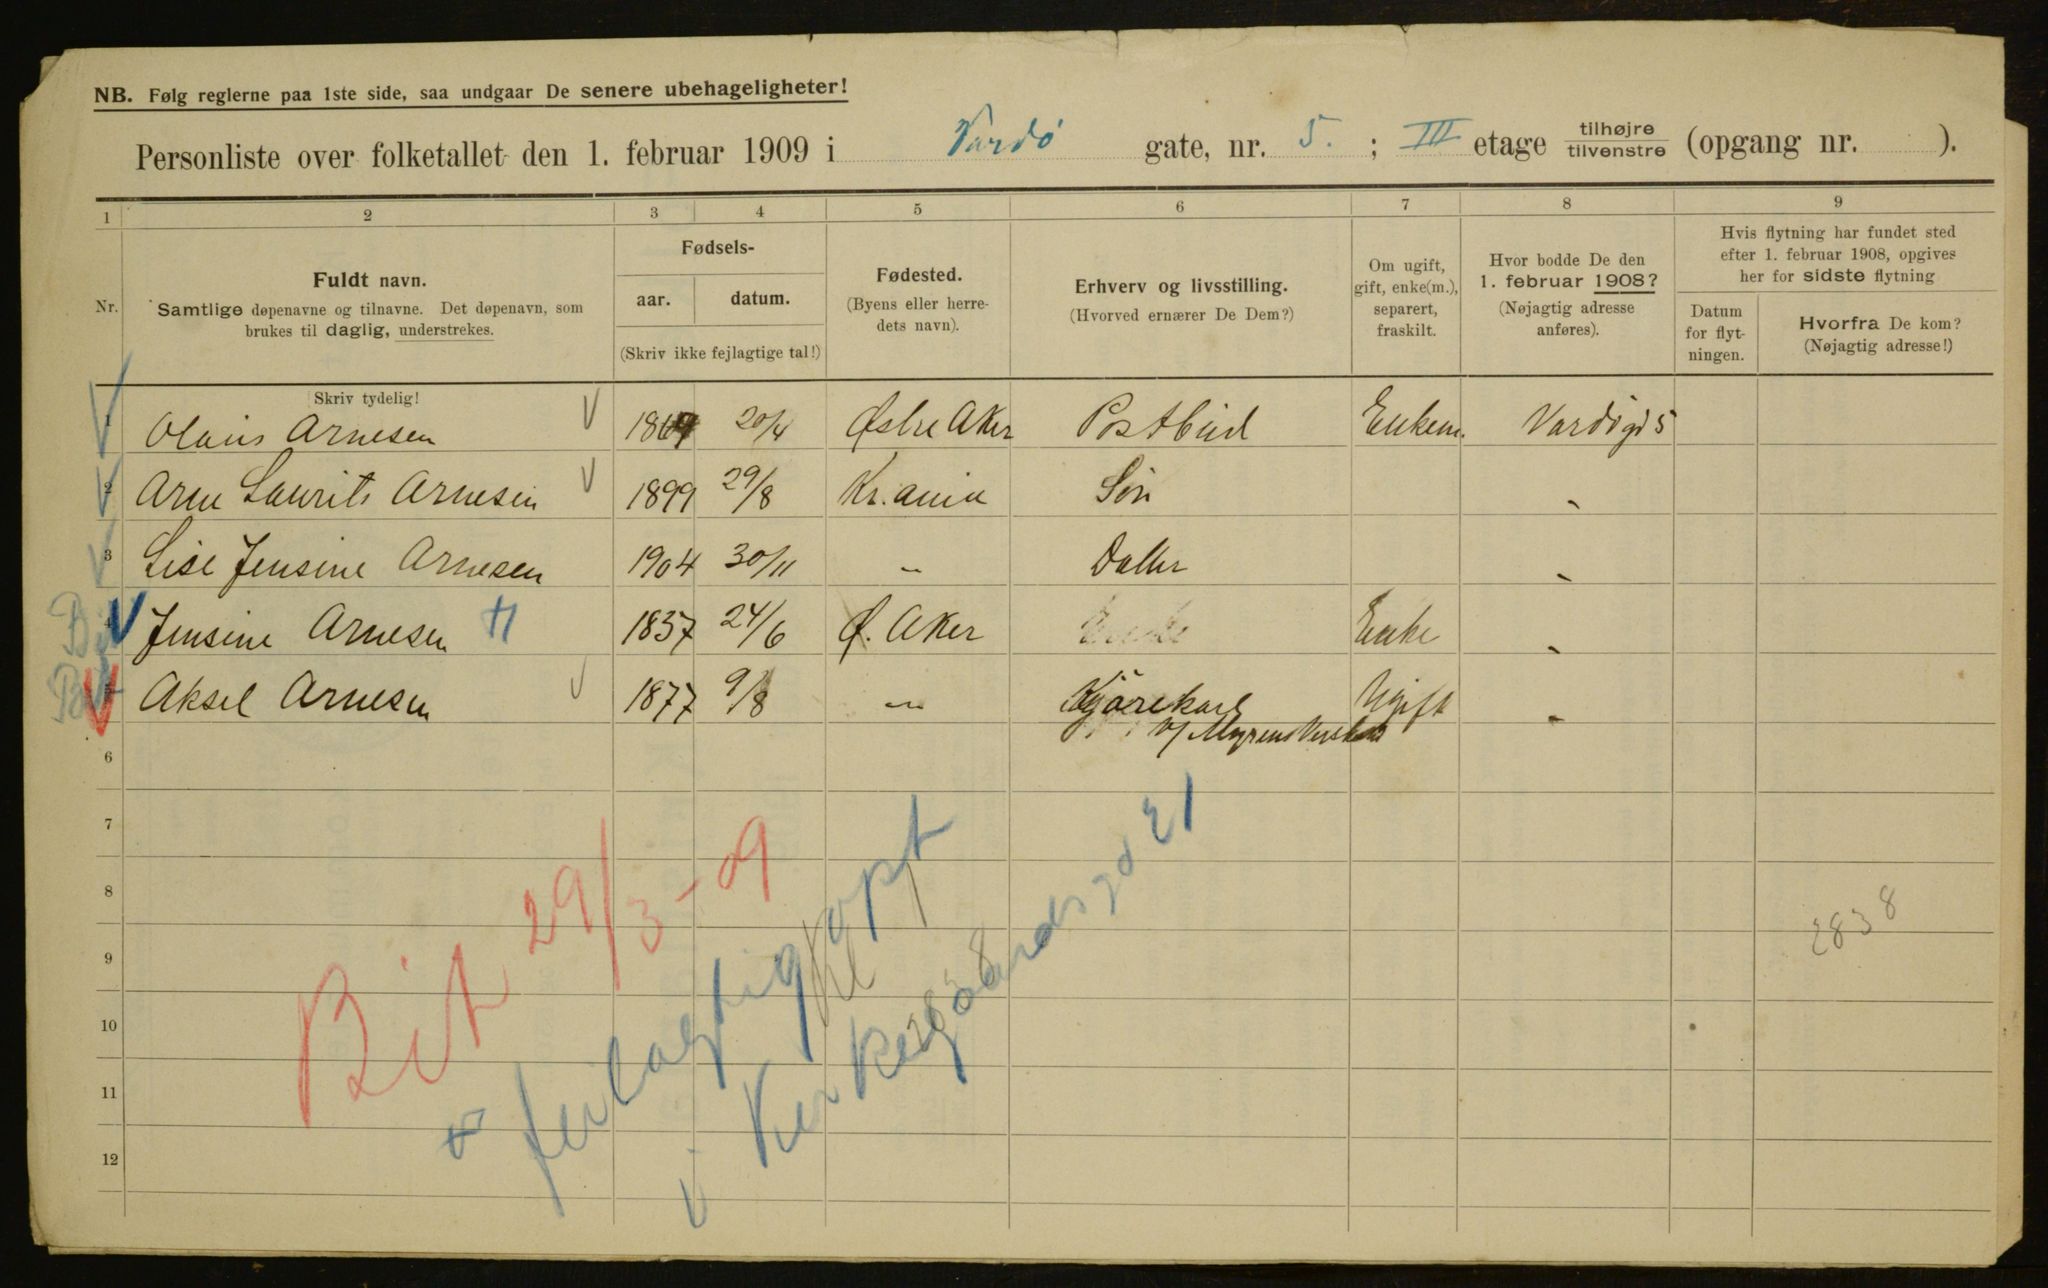 NB. Følg reglerne paa 1ste side, saa undgaar De senere ubehageligheter!
Personliste over folketallet den 1. februar 1909 i Vardö gate, nr. 5. ; III etage tilhøjre tilvenstre (opgang nr. ).
1 2 3 4 5 6 7 8 9
Nr.
Fuldt navn.
Samtlige døpenavne og tilnavne. Det døpenavn, som
brukes til daglig, understrekes.
Fødsels-
aar. datum.
(Skriv ikke fejlagtige tal!)
Fødested.
(Byens eller herre-
dets navn).
Erhverv og livsstilling.
(Hvorved ernærer De Dem?)
Om ugift,
gift, enke(m.),
separert,
fraskilt.
Hvor bodde De den
1. februar 1908?
(Nøjagtig adresse
anføres).
Hvis flytning har fundet sted
efter 1. februar 1908, opgives
her for sidste flytning
Datum
for flyt-
ningen.
Hvorfra De kom?
(Nøjagtig adresse!)
Skriv tydelig!
1 Olaus Arnesen 1869 20/4 Østre Aker Postbud Enkem. Vardögd 5
2 Arne Laurits Arnesen 1899 29/8 Kr.ania Sön "
3 Lise Jensine Arnesen 1904 30/11 " Datter "
4 Jensine Arnesen 1837 24/6 Ø. Aker Enke Enke "
5 Aksel Arnesen 1877 9/8 " Kjörekarl Ugift "
v/ Myrens Verksted
6
7
8
9
10
11
12
Bit 29/3-09
feilagtig opf
i Kirkegaardsgd 21
2838